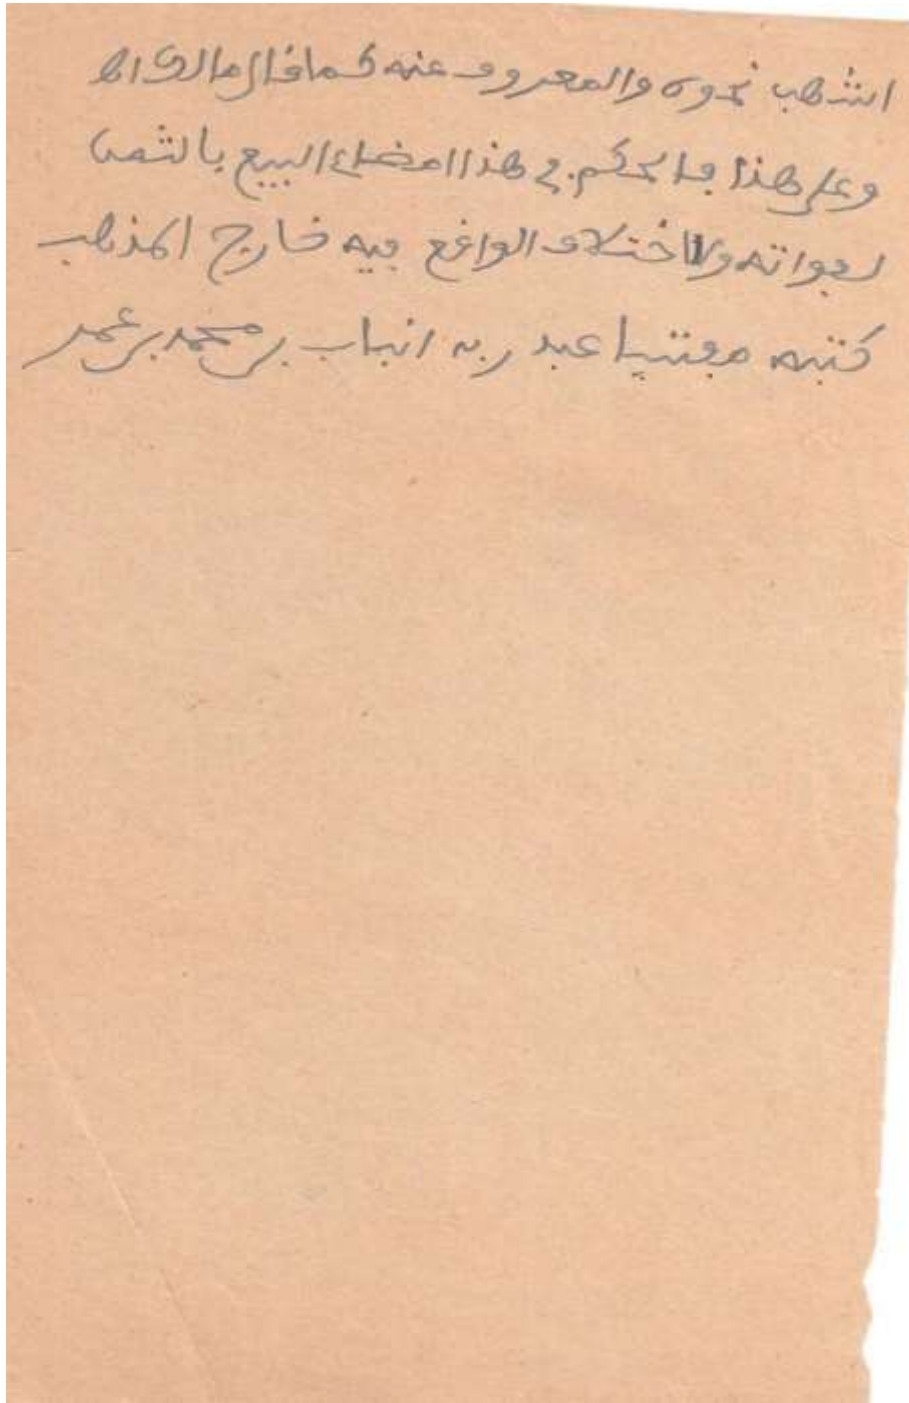 اشهب نحوه والمعروف عنه كما قال مالك اهـ
وعلى هذا فالحكم في هذا امضاء البيع بالثمن
لفواته والاختلاف الواقع فيه خارج المذهب
كتبه مفتيا عبد ربه انباب بن محمد بن عمر